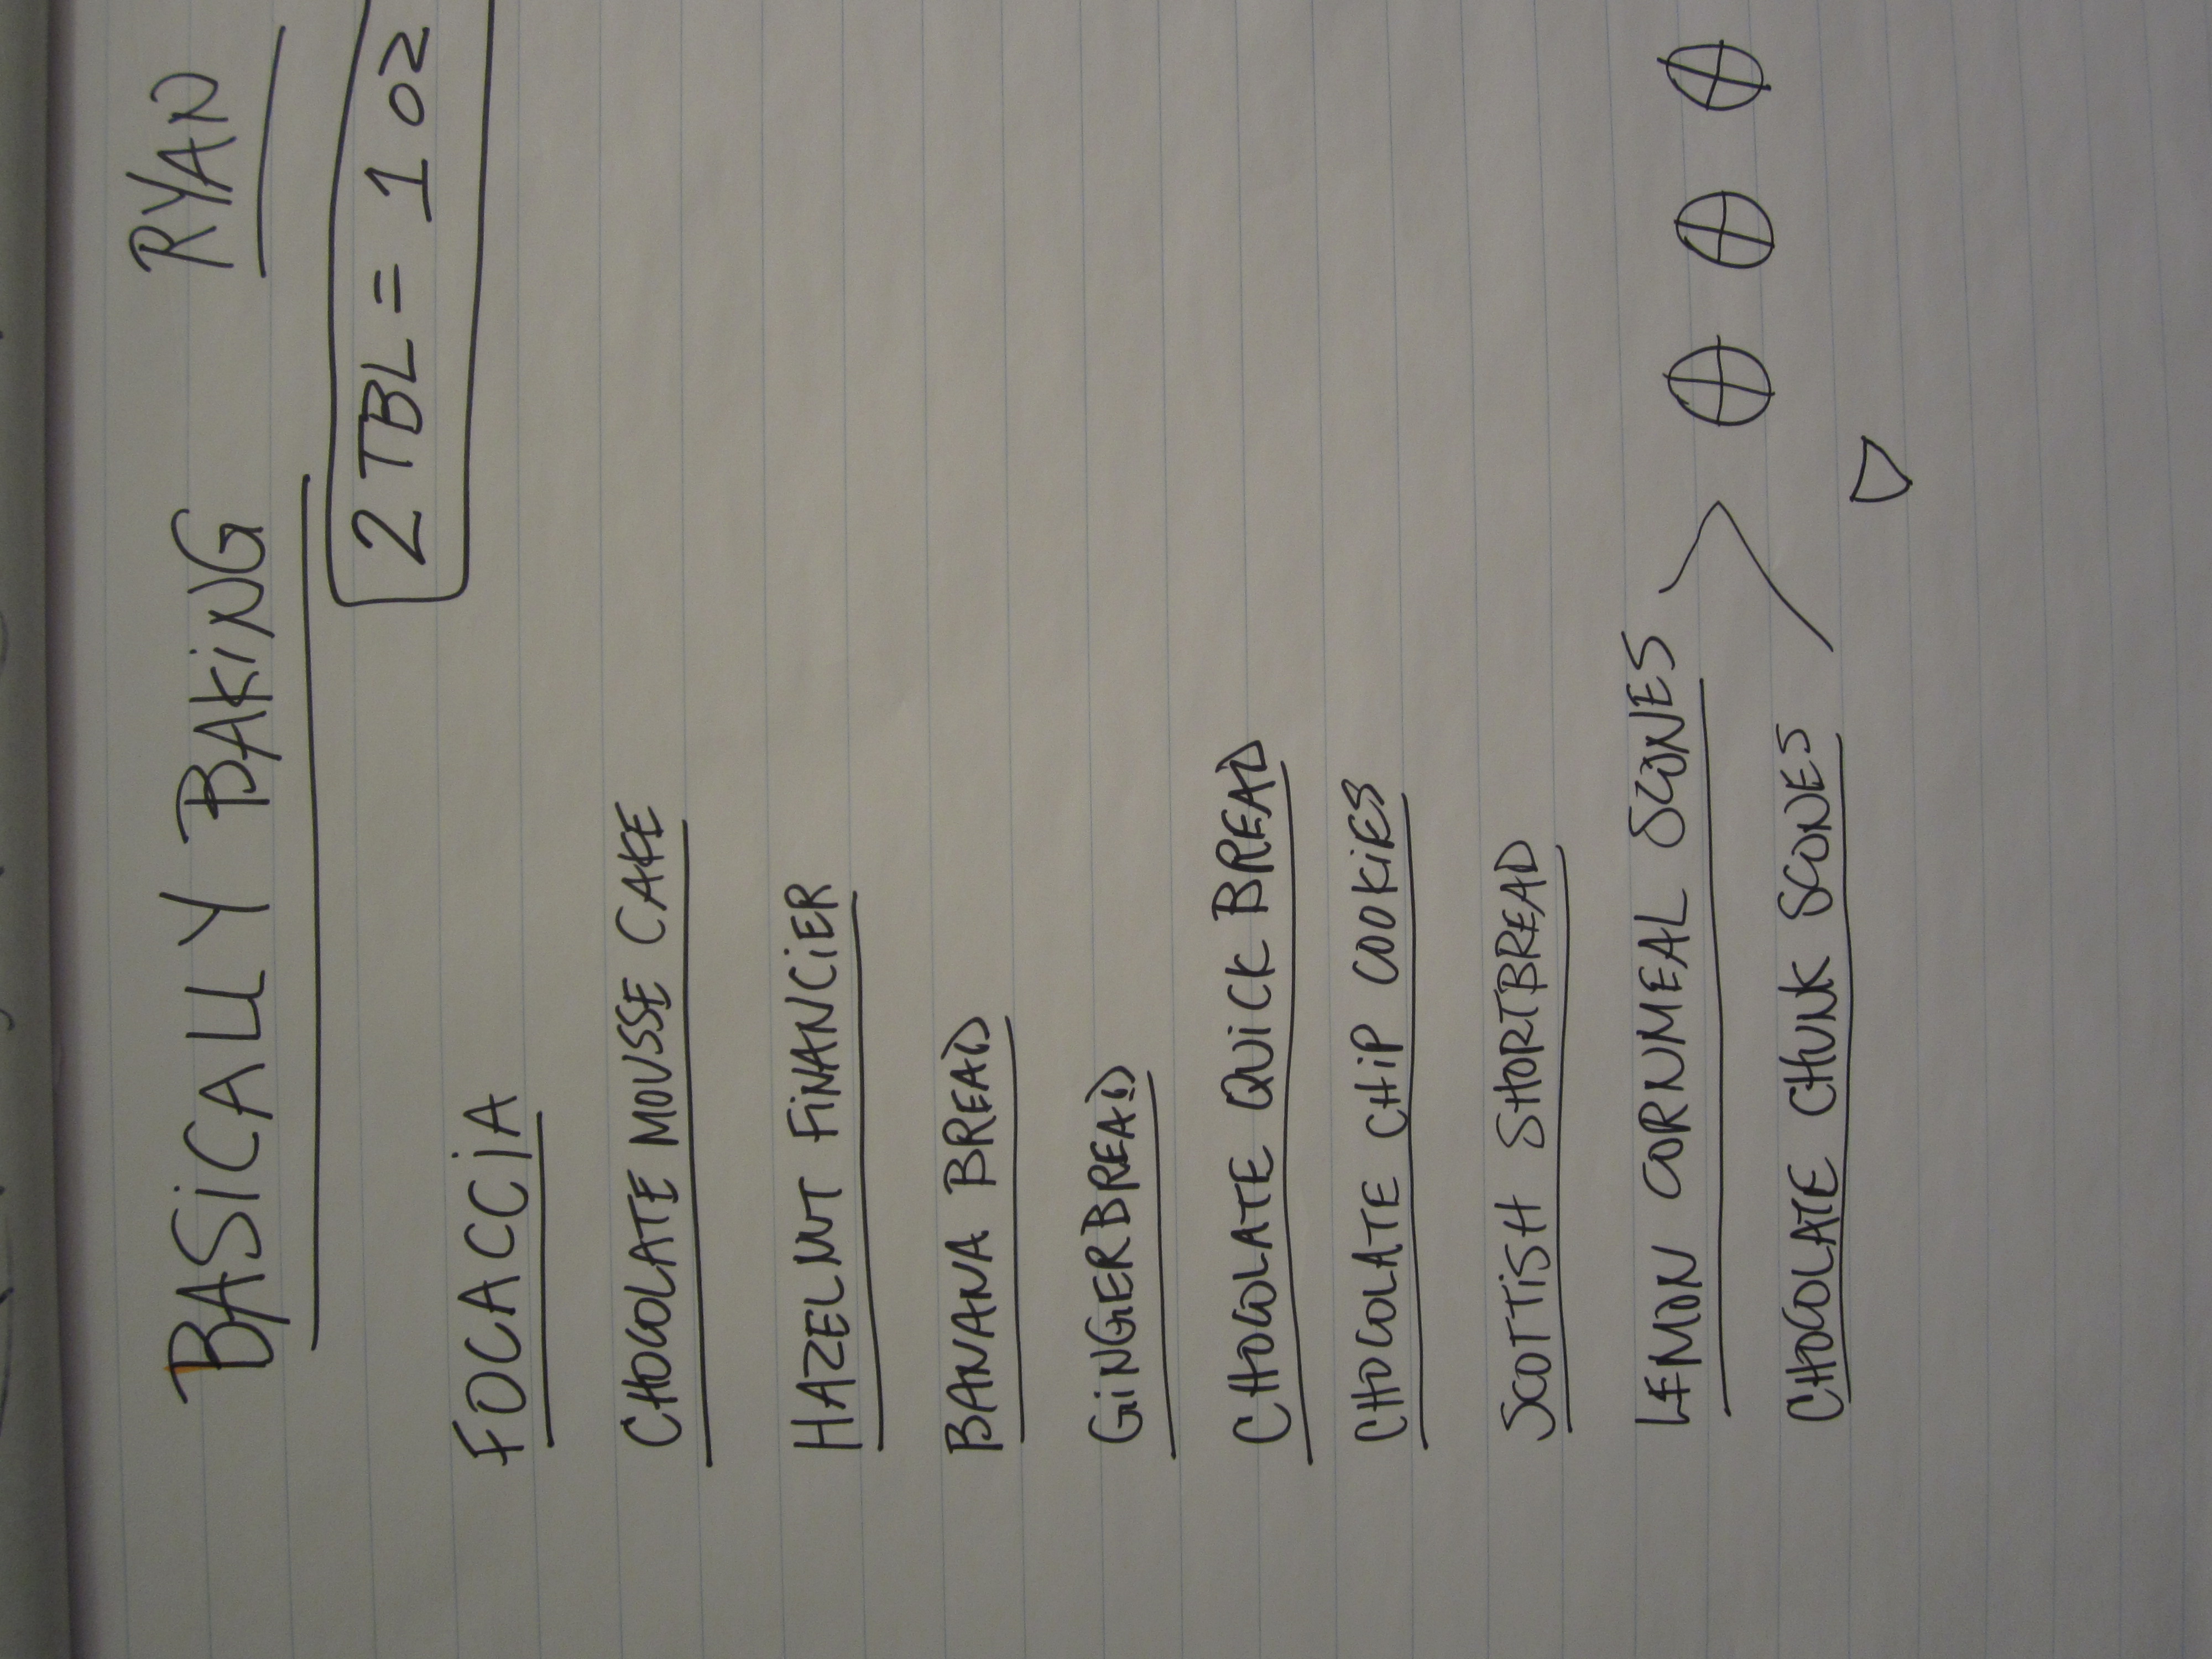 BASICALLY BAKING RYAN
2 TBL = 1 OZ
FOCACCIA
CHOCOLATE MOUSSE CAKE
HAZELNUT FINANCIER
BANANA BREAD
GINGERBREAD
CHOCOLATE QUICK BREAD
CHOCOLATE CHIP COOKIES
SCOTTISH SHORTBREAD
LEMON CORNMEAL SCONES
CHOCOLATE CHUNK SCONES